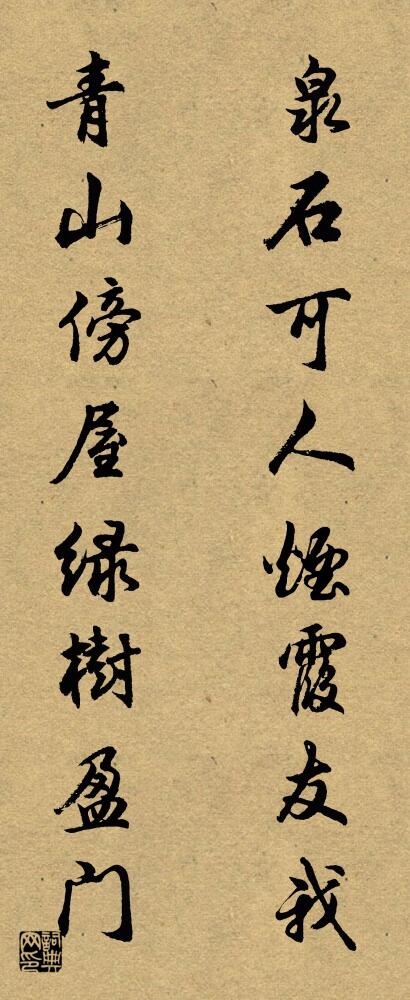 泉石可人煙霞友我
青山傍屋綠樹盈门
詞典网印